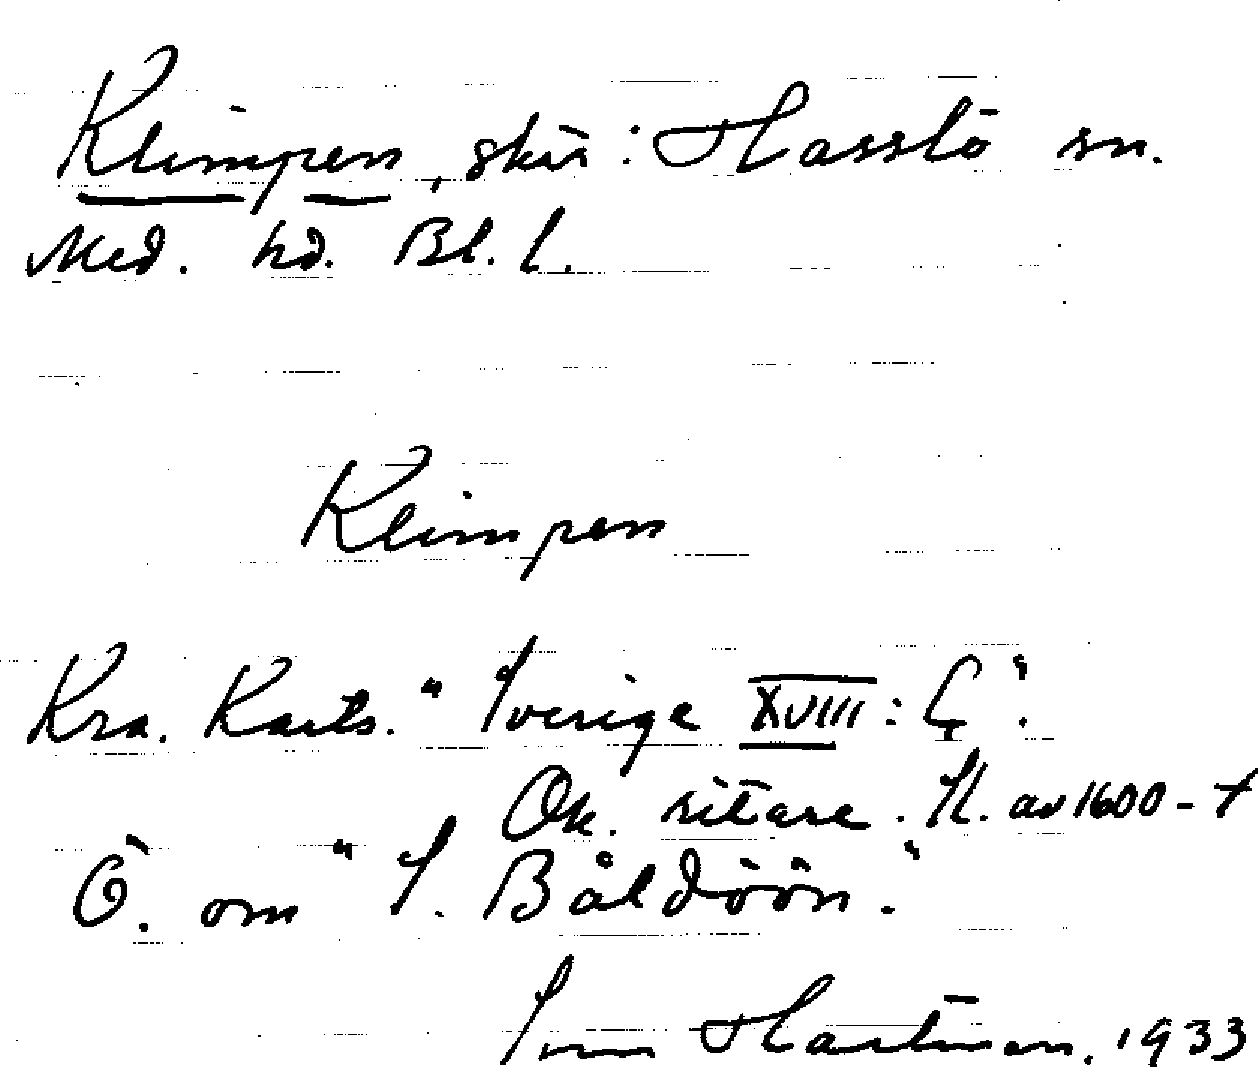 Klimpen, skär: Hasslö sn.
Med. hd. Bl. l.
Klimpen
Kra. Karts. "Sverige XVIII: C".
Ok. ritare. Sl. av 1600-t
Ö. om "S. Båldöön."
Sven Hartman. 1933